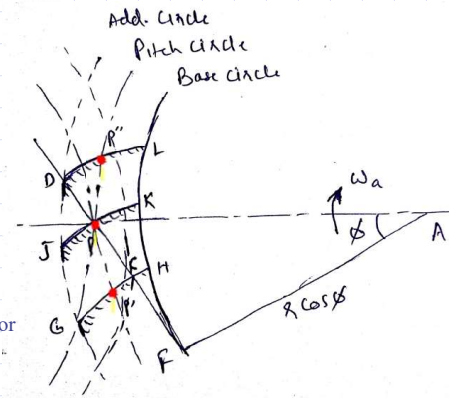 Add. Circle
Pitch Circle
Base Circle
P"
L
D
K
ωa
J
P
E
H
ϕ
A
G
P'
r cosϕ
F
or